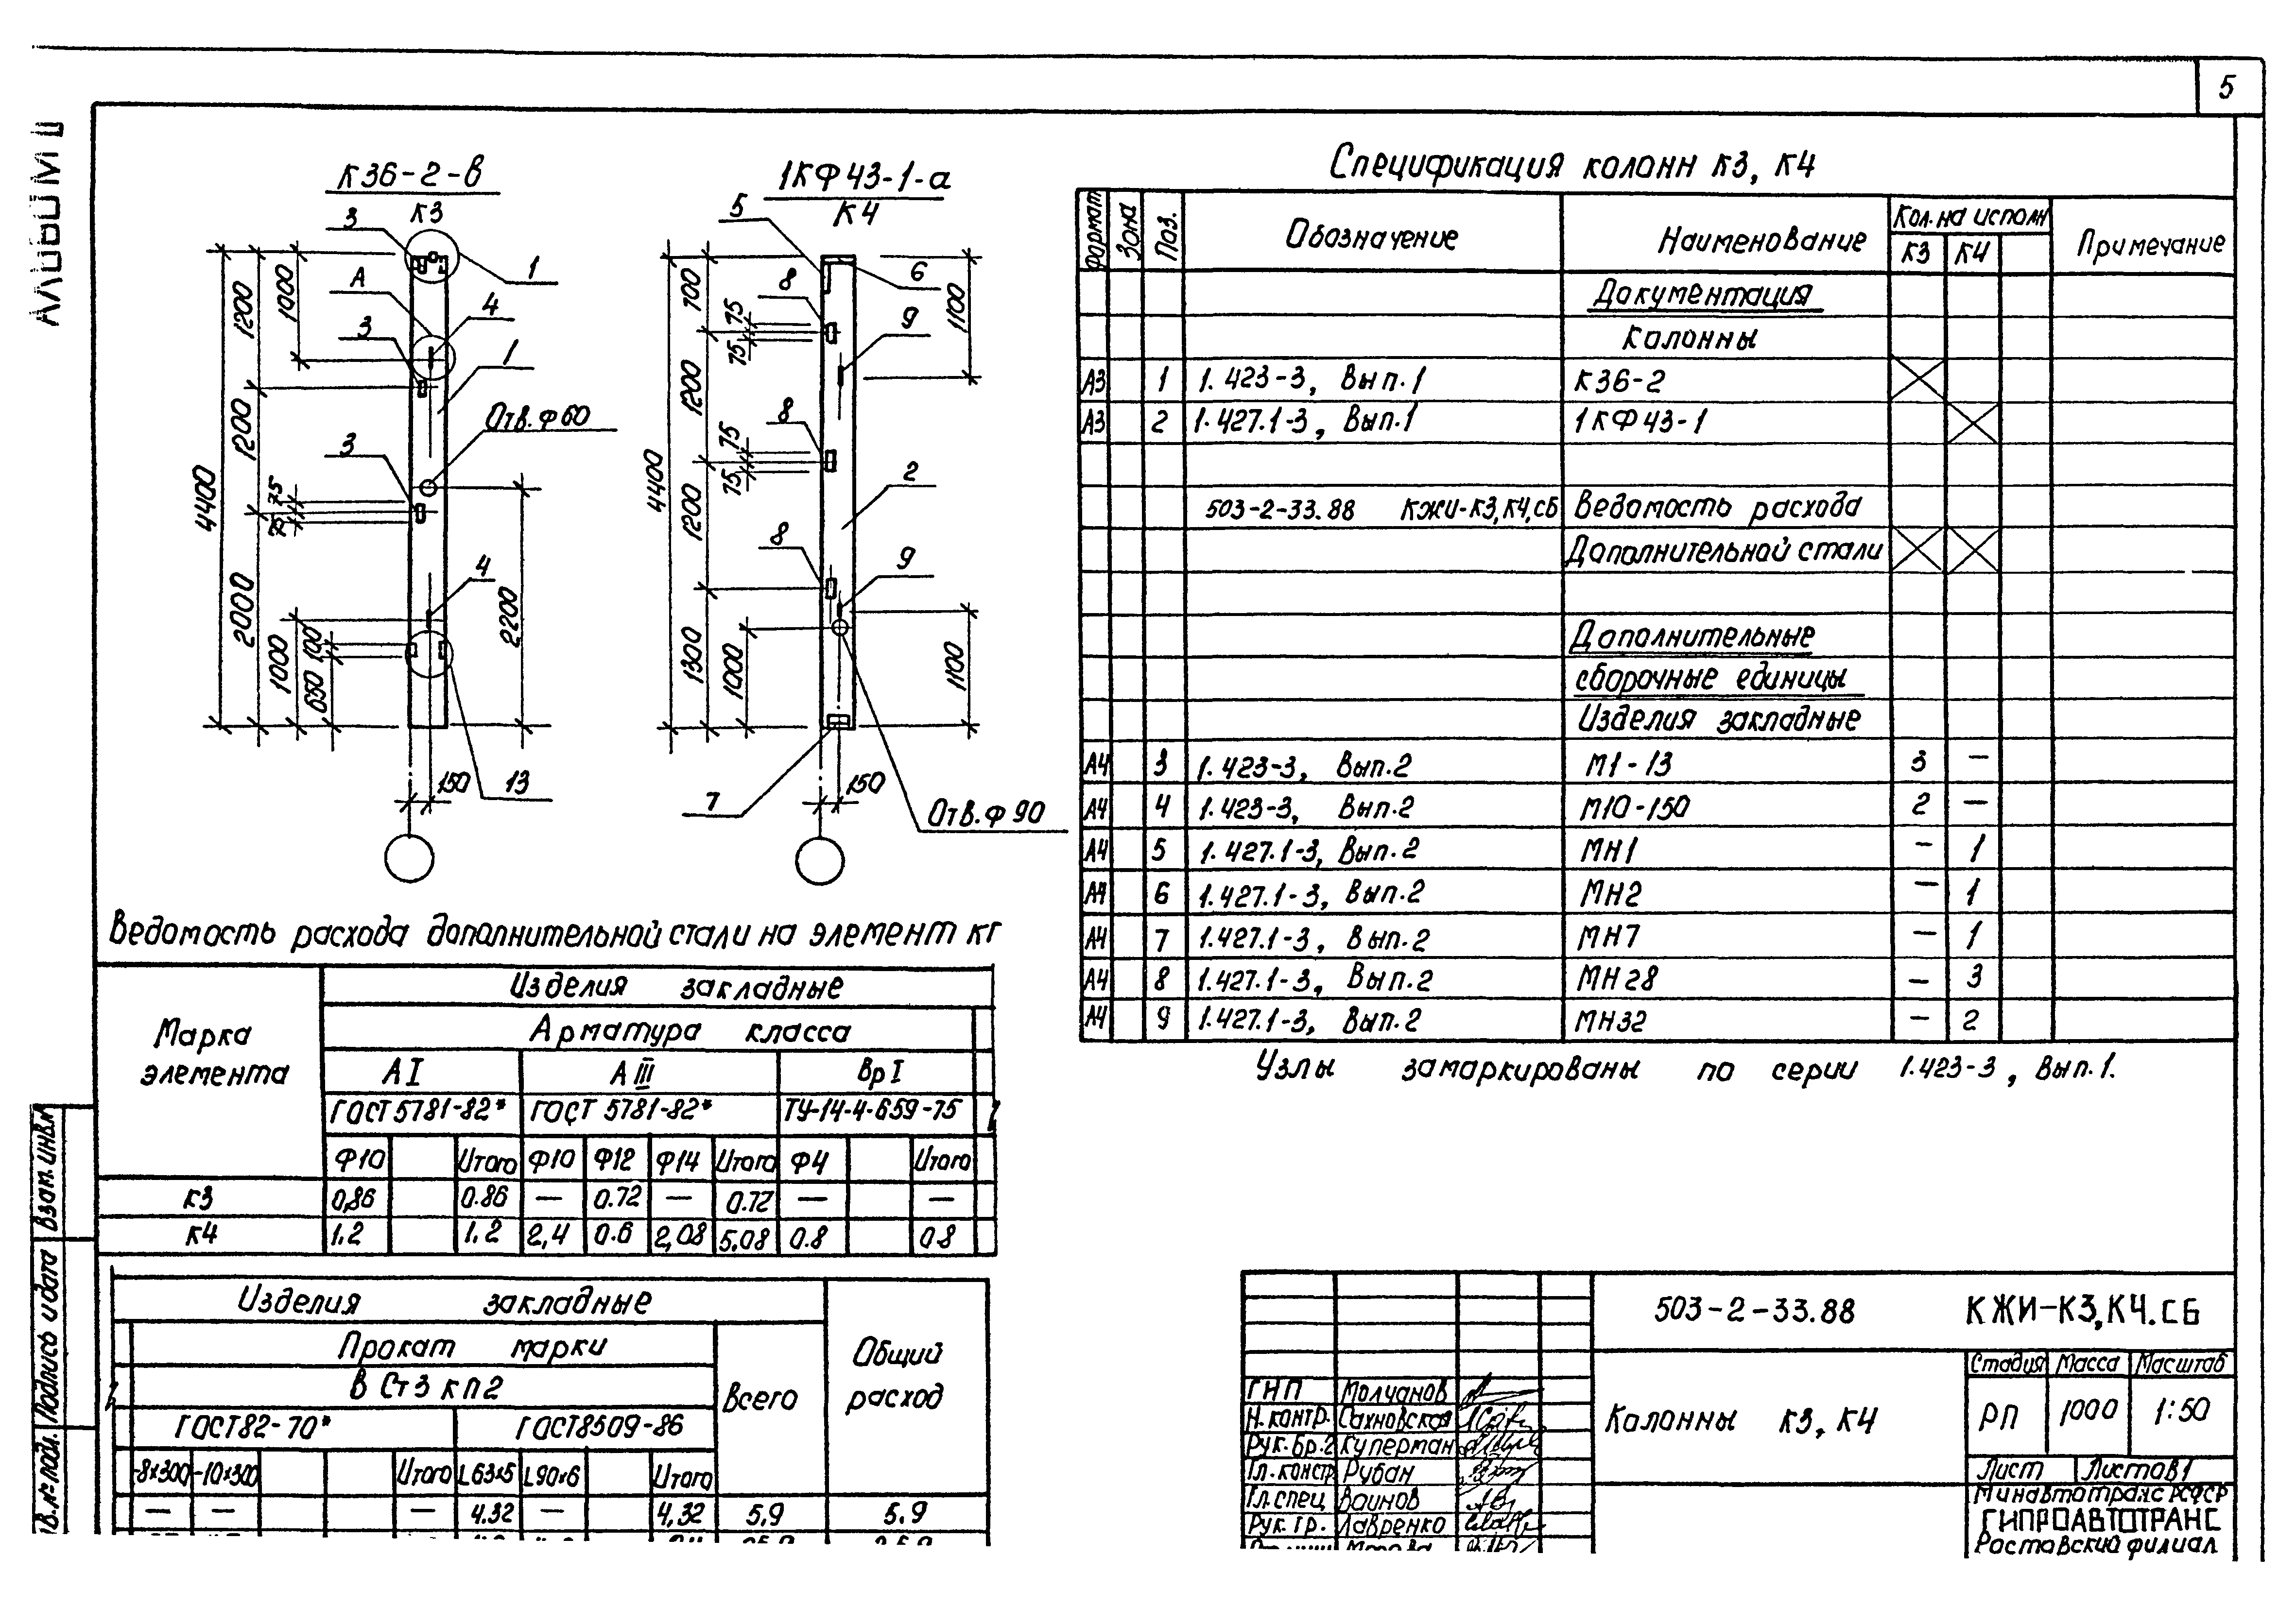 5
Альбом II
К36-2-в
К3
3
1
А
4
3
1
Отв. Ф60
3
4
13
4400
1200
1200
2000
1000
75
75
1000
100
650
2200
150
1КФ43-1-а
К4
5
6
8
9
8
2
8
9
7
Отв. Ф90
4400
700
1200
1200
1300
75
75
75
75
1000
1100
1100
150
Спецификация колонн К3, К4
Формат Зона Поз. Обозначение Наименование Кол. на исполн Примечание
К3 К4
Документация
Колонны
А3 1 1.423-3, Вып.1 К36-2
А3 2 1.427.1-3, Вып.1 1КФ43-1
503-2-33.88 КЖИ-К3,К4,СБ Ведомость расхода
Дополнительной стали
Дополнительные
сборочные единицы
Изделия закладные
А4 3 1.423-3, Вып.2 М1-13 3 —
А4 4 1.423-3, Вып.2 М10-150 2 —
А4 5 1.427.1-3, Вып.2 МН1 — 1
А4 6 1.427.1-3, Вып.2 МН2 — 1
А4 7 1.427.1-3, Вып.2 МН7 — 1
А4 8 1.427.1-3, Вып.2 МН28 — 3
А4 9 1.427.1-3, Вып.2 МН32 — 2
Узлы замаркированы по серии 1.423-3, Вып.1.
Ведомость расхода дополнительной стали на элемент кг
Марка элемента
Изделия закладные
Арматура класса
АI АIII ВрI
ГОСТ 5781-82* ГОСТ 5781-82* ТУ-14-4-659-75
Ф10 Итого Ф10 Ф12 Ф14 Итого Ф4 Итого
К3 0,86 0.86 — 0.72 — 0.72 — —
К4 1.2 1.2 2,4 0.6 2,08 5,08 0.8 0.8
Изделия закладные
Прокат марки
В Ст3 кп2
Всего
Общий расход
ГОСТ82-70* ГОСТ8509-86
-8х300 -10х300 Итого L63х5 L90х6 Итого
— — — 4.32 4,32 5,9 5.9
Взам. инв.№
Подпись и дата
503-2-33.88 КЖИ-К3,К4.СБ
ГИП Молчанов
Н.контр. Сахновская
Рук.бр.2 Куперман
Гл.констр Рубан
Гл.спец Воинов
Рук.гр. Лавренко
Колонны К3, К4
Стадия Масса Масштаб
РП 1000 1:50
Лист Листов 1
Минавтотранс РСФСР
ГИПРОАВТОТРАНС
Ростовский филиал